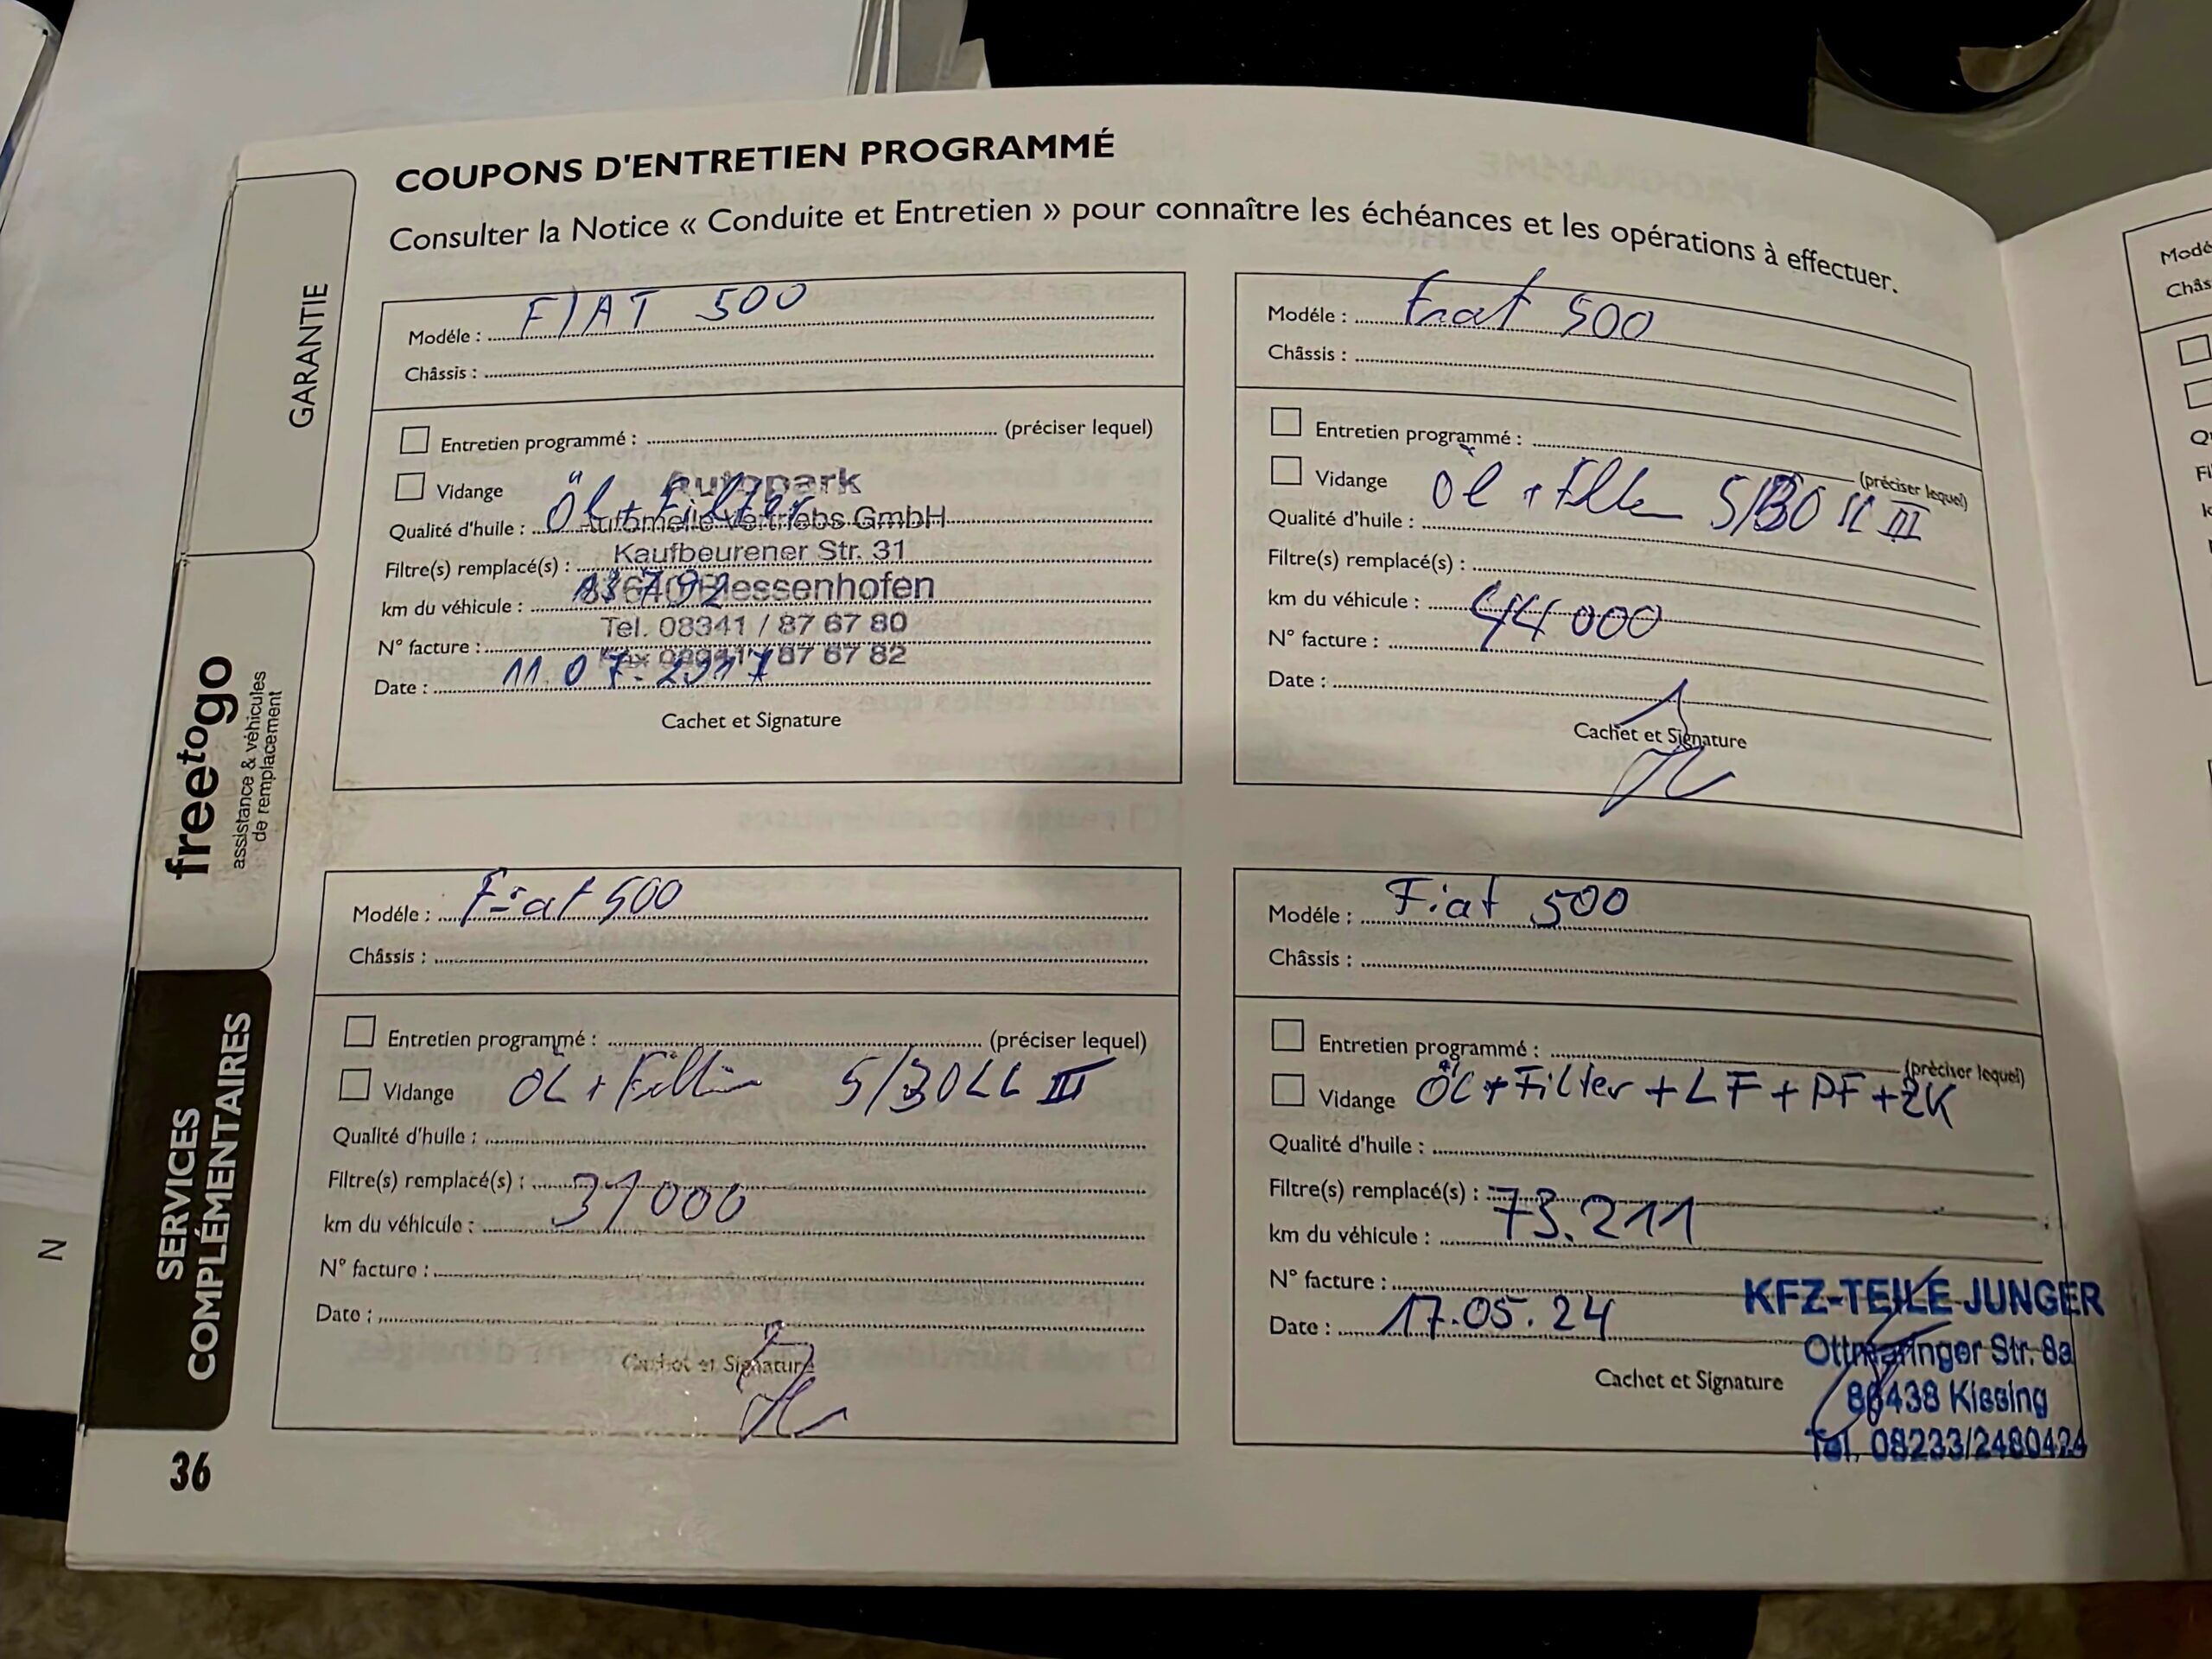 COUPONS D'ENTRETIEN PROGRAMMÉ
Consulter la Notice « Conduite et Entretien » pour connaître les échéances et les opérations à effectuer.
GARANTIE
freetogo
assistance & véhicules
de remplacement
SERVICES
COMPLÉMENTAIRES
36
N
Modéle : FIAT 500
Châssis :
Entretien programmé : (préciser lequel)
Vidange
Qualité d'huile : Öl + Filter
Filtre(s) remplacé(s) :
km du véhicule :
N° facture :
Date : 11.07.
Cachet et Signature
Autopark
Automeile Vertriebs GmbH
Kaufbeurener Str. 31
Biessenhofen
Tel. 08341 / 87 67 80
Fax 08341 / 87 67 82
Modéle : Fiat 500
Châssis :
Entretien programmé :
(préciser lequel)
Vidange Öl + Filter 5/30 LL III
Qualité d'huile :
Filtre(s) remplacé(s) :
km du véhicule : 44 000
N° facture :
Date :
Cachet et Signature
Modéle : Fiat 500
Châssis :
Entretien programmé : (préciser lequel)
Vidange ÖL + Filter 5/30 LL III
Qualité d'huile :
Filtre(s) remplacé(s) :
km du véhicule : 31 000
N° facture :
Date :
Cachet et Signature
Modéle : Fiat 500
Châssis :
Entretien programmé :
(préciser lequel)
Vidange ÖL + Filter + LF + PF + ZK
Qualité d'huile :
Filtre(s) remplacé(s) :
km du véhicule : 73.211
N° facture :
Date : 17.05.24
Cachet et Signature
KFZ-TEILE JUNGER
Ottmaringer Str. 8a
86438 Kissing
Tel. 08233/2480424
Modé
Châs